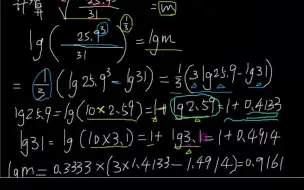 计算 ∛(25.9³/31) = m
lg(25.9³/31)^(1/3) = lgm
= 1/3 (lg25.9³ - lg31) = 1/3 (3lg25.9 - lg31)
lg25.9 = lg(10×2.59) = 1+lg2.59 = 1+0.4133
lg31 = lg(10×3.1) = 1+lg3.1 = 1+0.4914
lgm = 0.3333×(3×1.4133-1.4914) = 0.9161